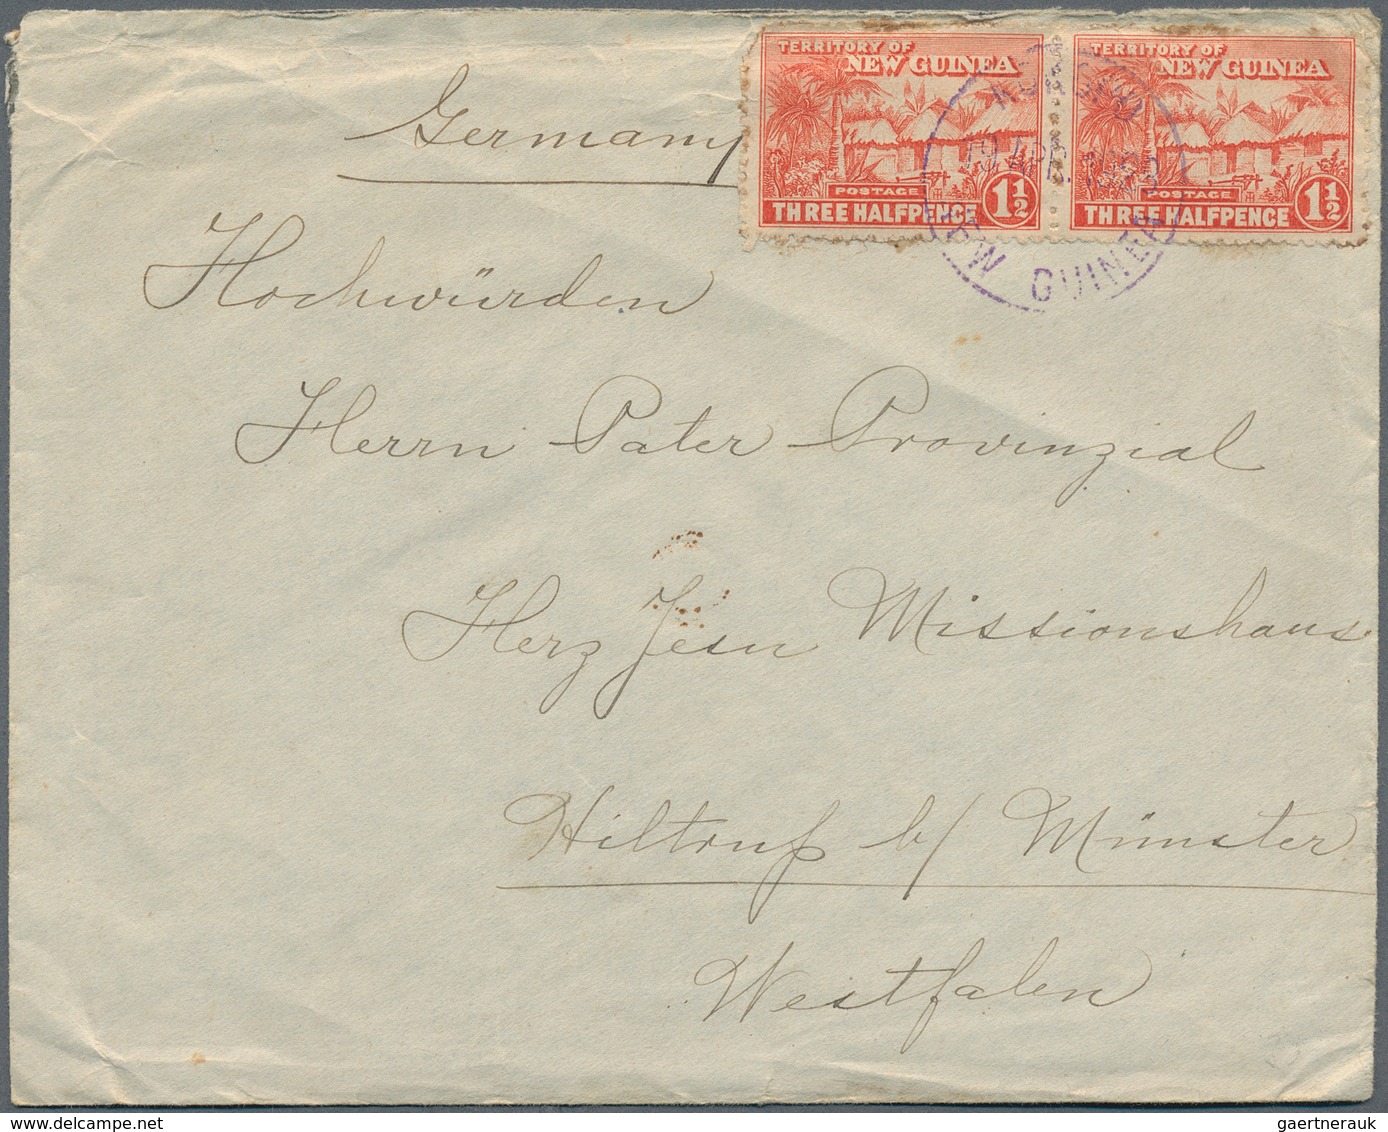 Germany
TERRITORY OF
NEW GUINEA
POSTAGE
THREE HALFPENCE 1½
TERRITORY OF
NEW GUINEA
POSTAGE
THREE HALFPENCE 1½
KOKOPO
19 APR. 1928
NEW GUINEA
Hochwürden
Herrn Pater Provinzial
Herz Jesu Missionshaus
Hiltrup b/ Münster
Westfalen
gaertnerauk @ delcampe.net